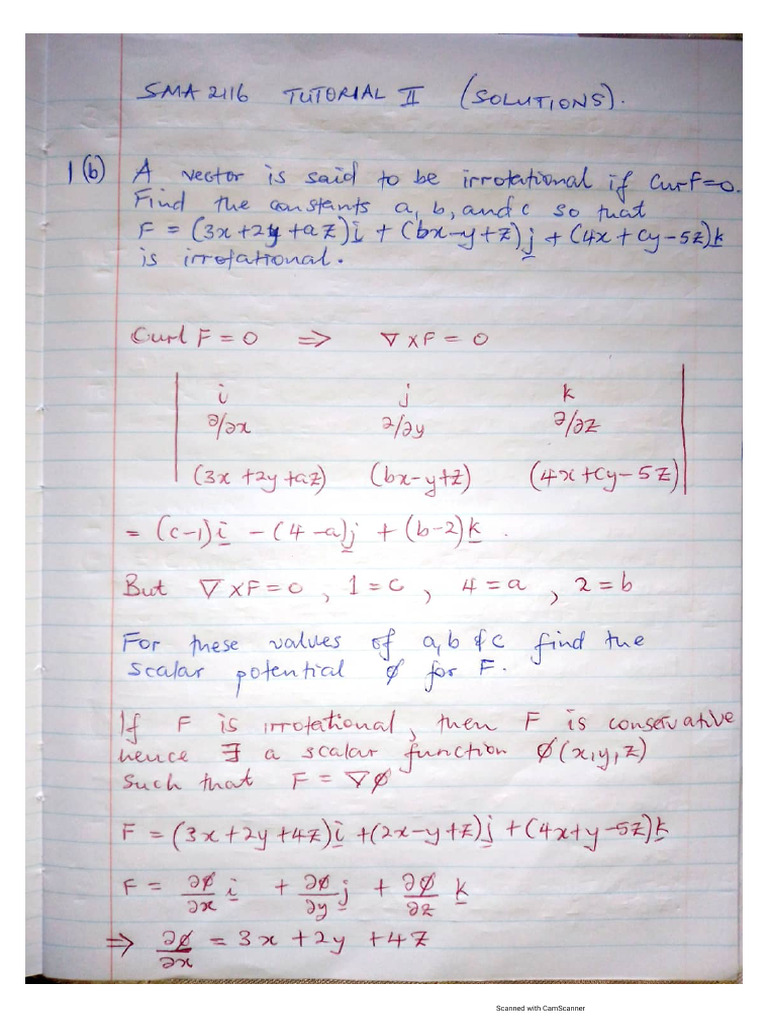 SMA 2116 TUTORIAL II (SOLUTIONS).
1(b) A vector is said to be irrotational if Curl F=0.
Find the constants a, b, and c so that
F = (3x+2y+az)i + (bx-y+z)j + (4x+cy-5z)k
is irrotational.
Curl F = 0 ⇒ ∇×F = 0
| i j k |
| ∂/∂x ∂/∂y ∂/∂z |
| (3x+2y+az) (bx-y+z) (4x+cy-5z) |
= (c-1)i - (4-a)j + (b-2)k.
But ∇×F=0, 1=c, 4=a, 2=b
For these values of a,b & c find the
scalar potential ø for F.
If F is irrotational, then F is conservative
hence ∃ a scalar function ø(x,y,z)
such that F = ∇ø
F = (3x+2y+4z)i + (2x-y+z)j + (4x+y-5z)k
F = ∂ø/∂x i + ∂ø/∂y j + ∂ø/∂z k
⇒ ∂ø/∂x = 3x+2y+4z
Scanned with CamScanner